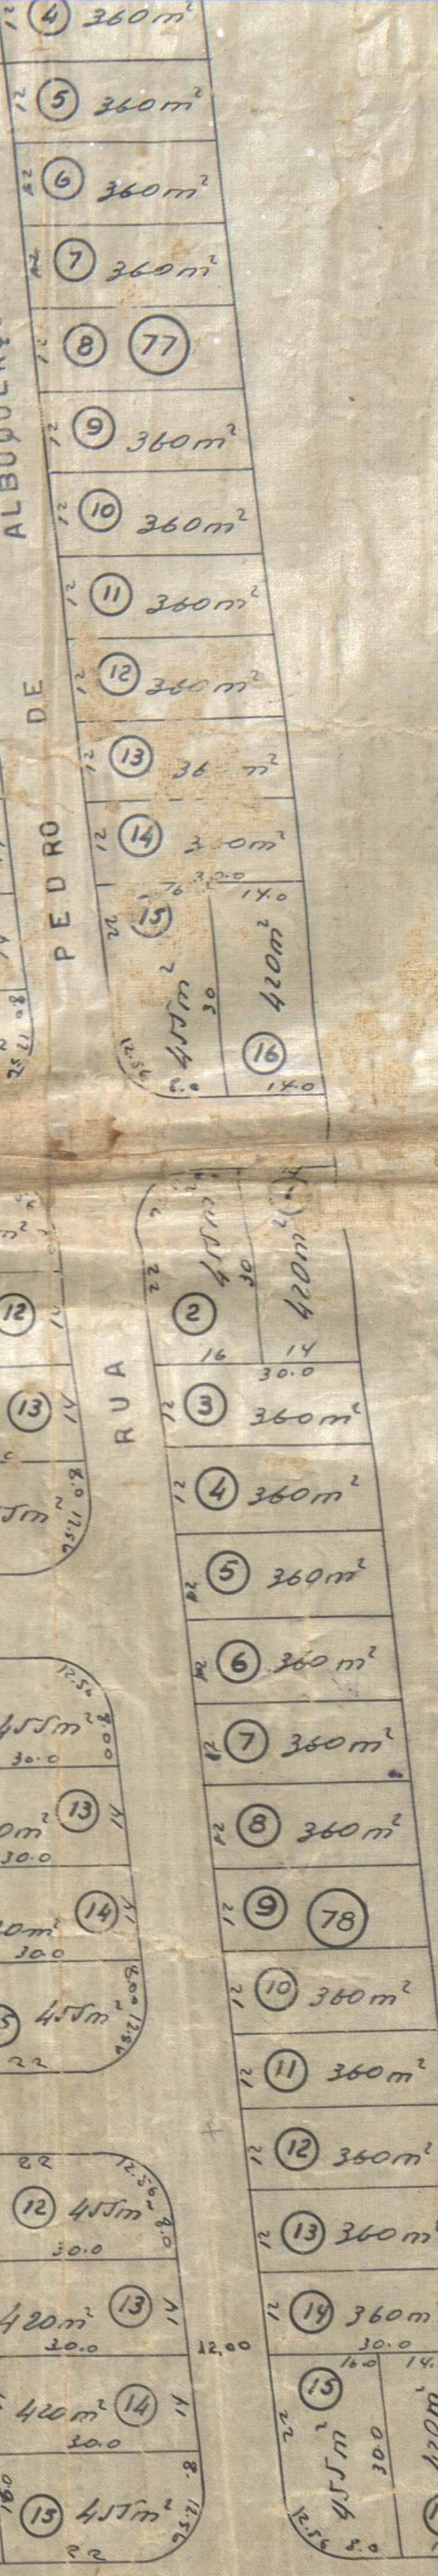 12 4 360m²
12 5 360m²
12 6 360m²
12 7 360m²
12 8 77
12 9 360m²
12 10 360m²
12 11 360m²
12 12 360m²
12 13 36 m²
12 14 3 0m²
30.0
16 14.0
22 15 455m² 30 420m² 16
12.56 8.0 14.0
RUA PEDRO DE
22 2 455m² 30 420m²
16 14
30.0
12 3 360m²
12 4 360m²
12 5 360m²
12 6 360m²
12 7 360m²
12 8 360m²
12 9 78
12 10 360m²
12 11 360m²
12 12 360m²
12 13 360m²
12 14 360m
30.0
16.0 14.
22 15 455m² 30.0 420m²
12.56 8.0
12,00
12 14
13 14
8.0 12.56
12.56
455m² 8.00
30.0
0m² 13 14
30.0
20m² 14 14
30.0
455m² 8.00 12.56
22
22 12.56
12 455m² 8.0
30.0
420m² 13 14
30.0
420m² 14 14
30.0
15 455m² 8. 12.56
22